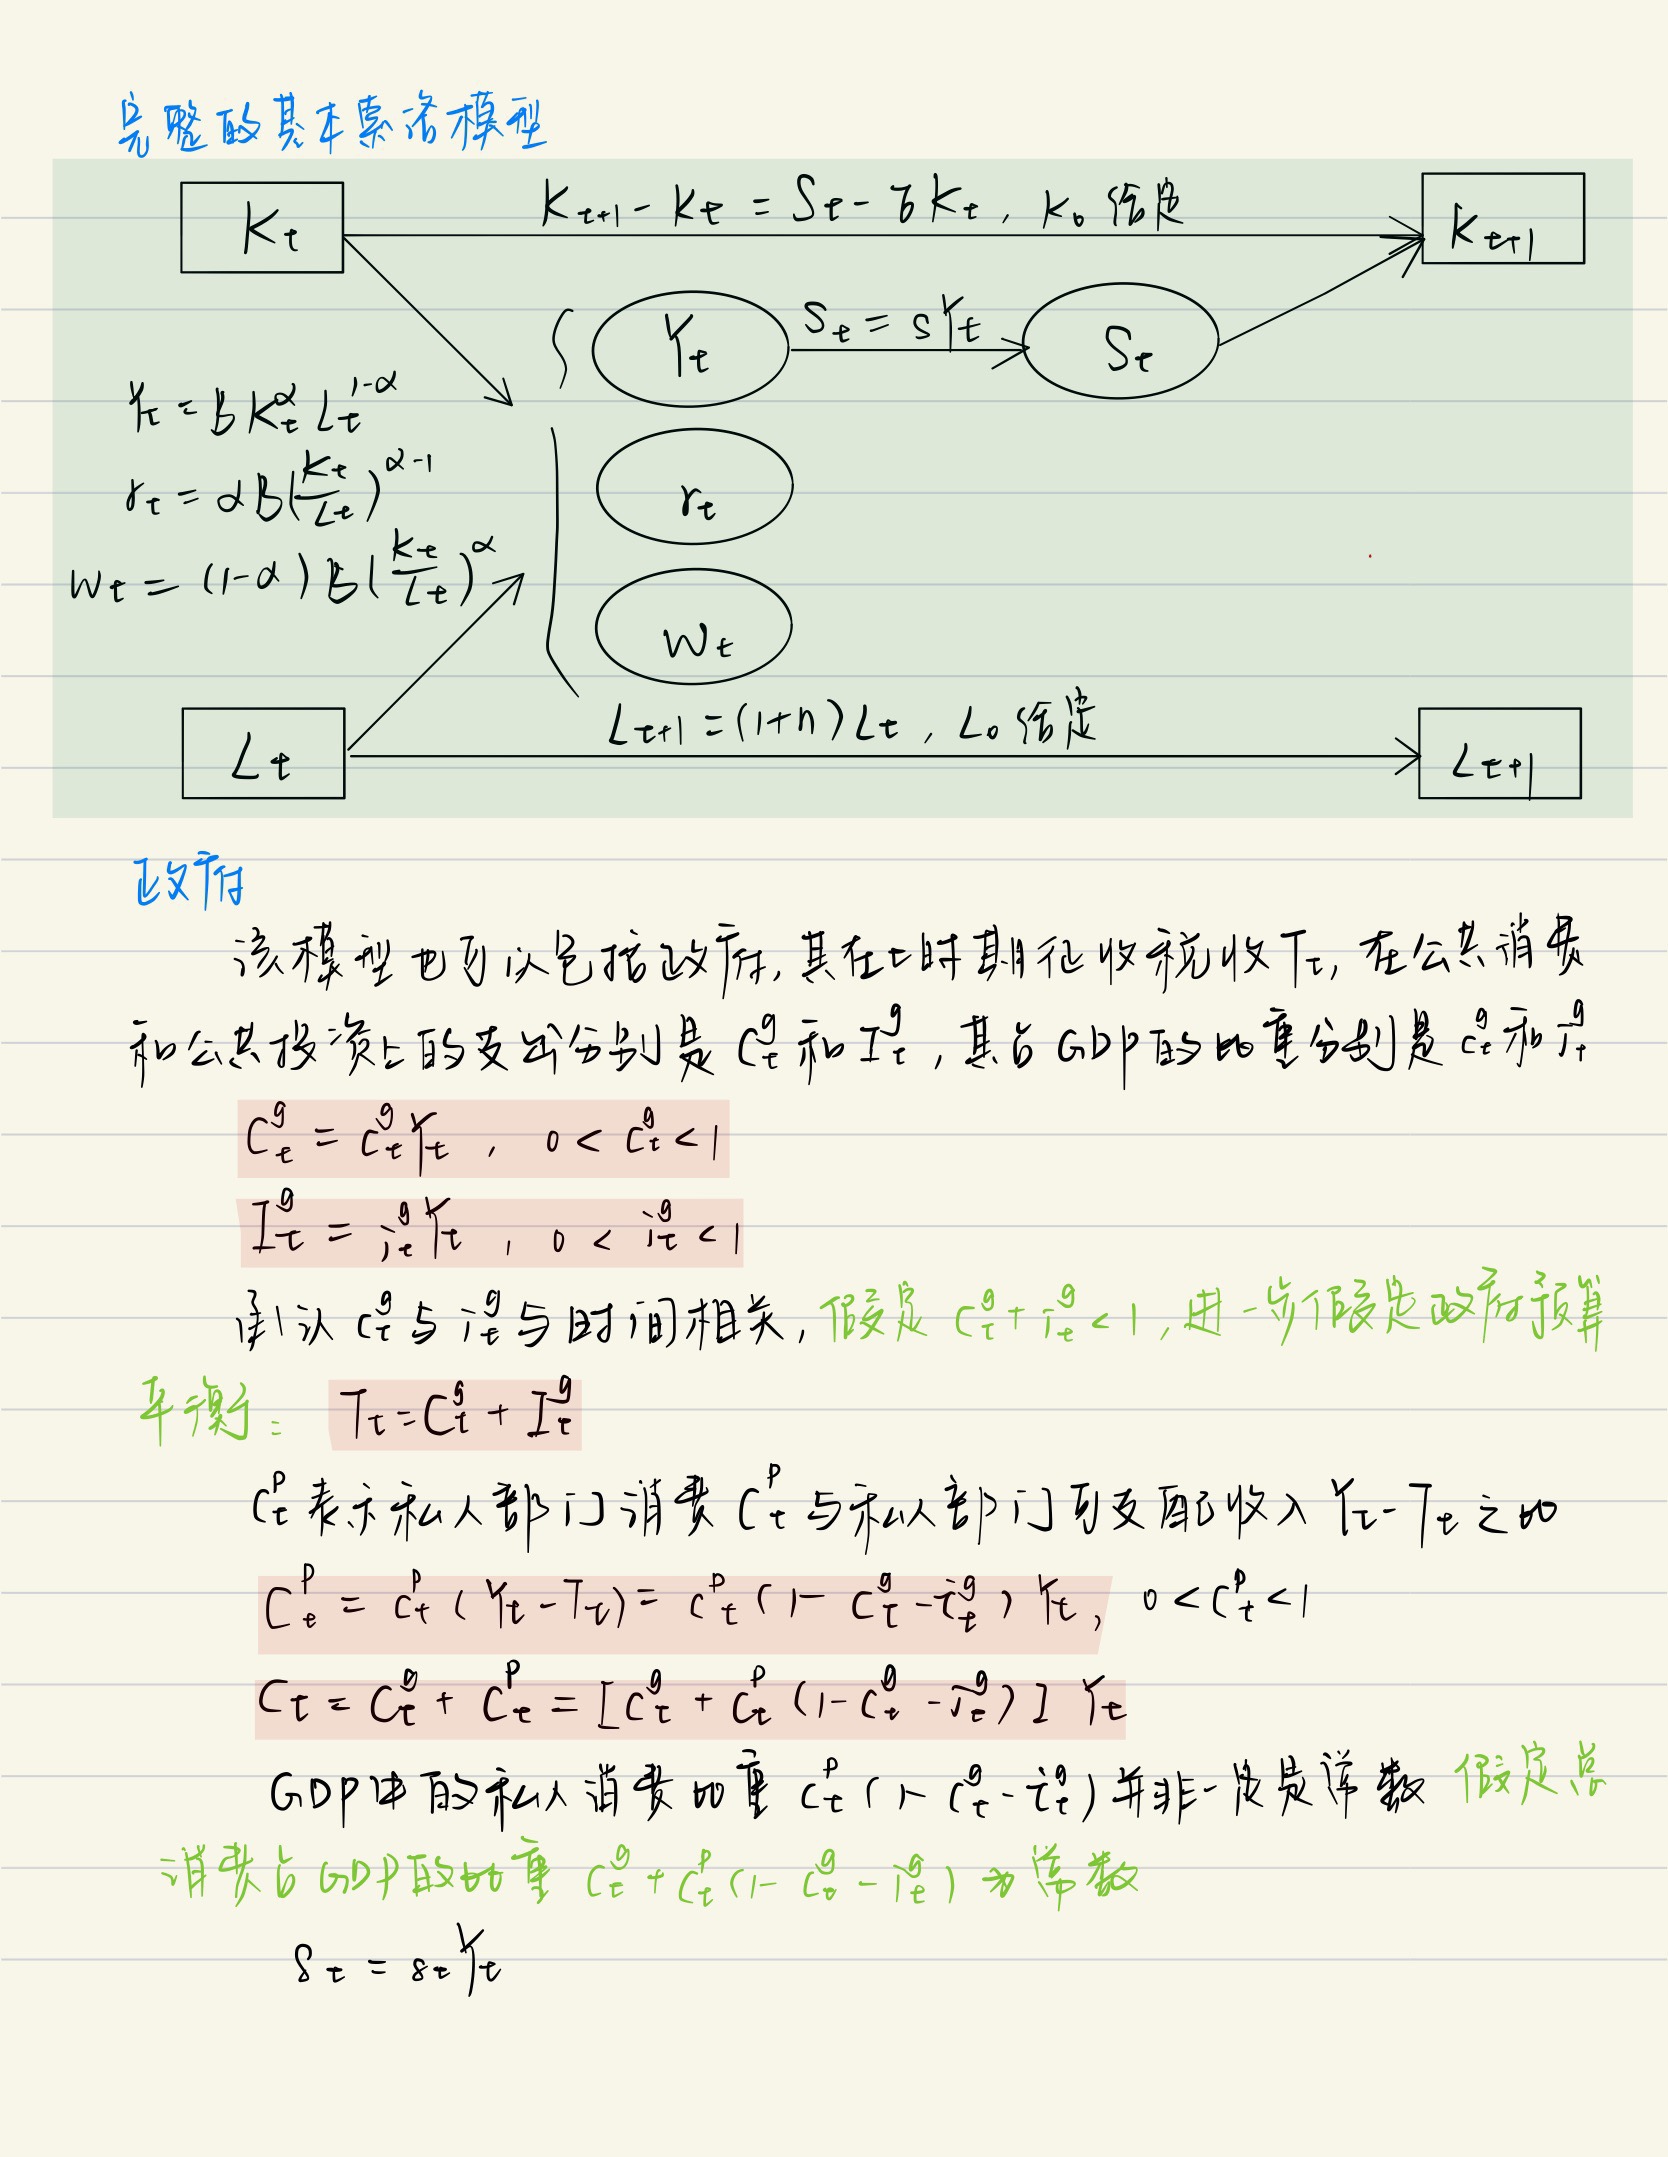 完整的基本索洛模型
K_t
K_{t+1} - K_t = S_t - δK_t, K_0 给定
K_{t+1}
Y_t
S_t = sY_t
S_t
Y_t = BK_t^α L_t^{1-α}
r_t = αB(K_t/L_t)^{α-1}
r_t
w_t = (1-α)B(K_t/L_t)^α
w_t
L_{t+1} = (1+n)L_t, L_0 给定
L_t
L_{t+1}
政府
该模型也可以包括政府,其在t时期征收税收T_t,在公共消费
和公共投资上的支出分别是C_t^g和I_t^g,其占GDP的比重分别是c_t^g和i_t^g
C_t^g = c_t^g Y_t , 0 < c_t^g < 1
I_t^g = i_t^g Y_t , 0 < i_t^g < 1
承认c_t^g与i_t^g与时间相关,假定c_t^g + i_t^g < 1,进一步假定政府预算
平衡: T_t = C_t^g + I_t^g
c_t^p表示私人部门消费C_t^p与私人部门可支配收入Y_t - T_t之比
C_t^p = c_t^p (Y_t - T_t) = c_t^p (1 - c_t^g - i_t^g) Y_t, 0 < c_t^p < 1
C_t = C_t^g + C_t^p = [c_t^g + c_t^p (1 - c_t^g - i_t^g)] Y_t
GDP中的私人消费比重c_t^p (1 - c_t^g - i_t^g)并非一定是常数 假定总
消费占GDP的比重 c_t^g + c_t^p (1 - c_t^g - i_t^g) 为常数
S_t = s_t Y_t